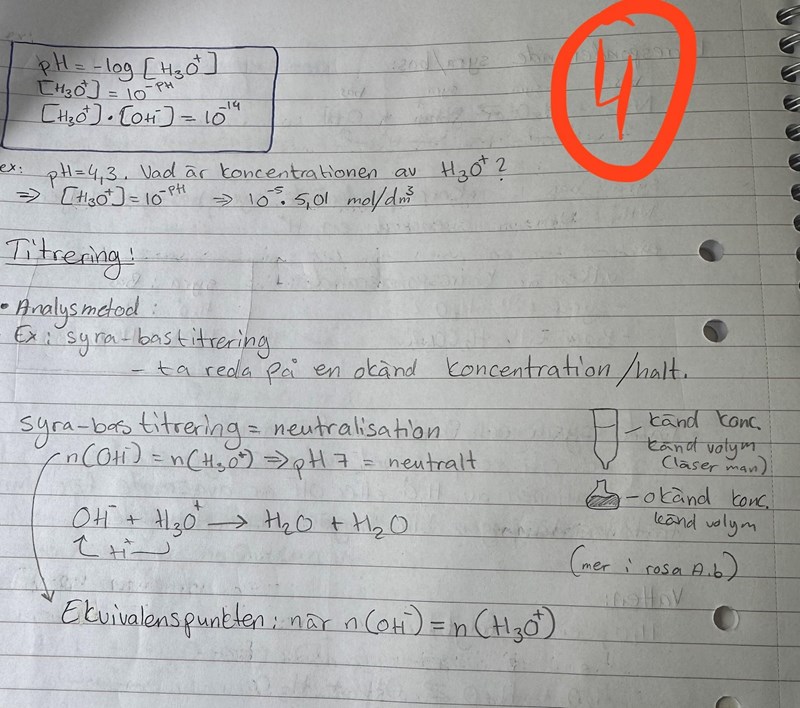 4
pH = -log [H₃O⁺]
[H₃O⁺] = 10⁻ᵖᴴ
[H₃O⁺] · [OH⁻] = 10⁻¹⁴
ex: pH=4,3. Vad är koncentrationen av H₃O⁺?
⇒ [H₃O⁺] = 10⁻ᵖᴴ ⇒ 10⁻⁵ · 5,01 mol/dm³
Titrering!
• Analysmetod:
Ex: syra-bastitrering
- ta reda på en okänd koncentration/halt.
syra-bastitrering = neutralisation
n(OH⁻) = n(H₃O⁺) ⇒ pH 7 = neutralt
OH⁻ + H₃O⁺ → H₂O + H₂O
H⁺
- känd konc.
känd volym
(läser man)
- okänd konc.
känd volym
(mer i rosa A.b)
Ekvivalenspunkten: när n(OH⁻) = n(H₃O⁺)